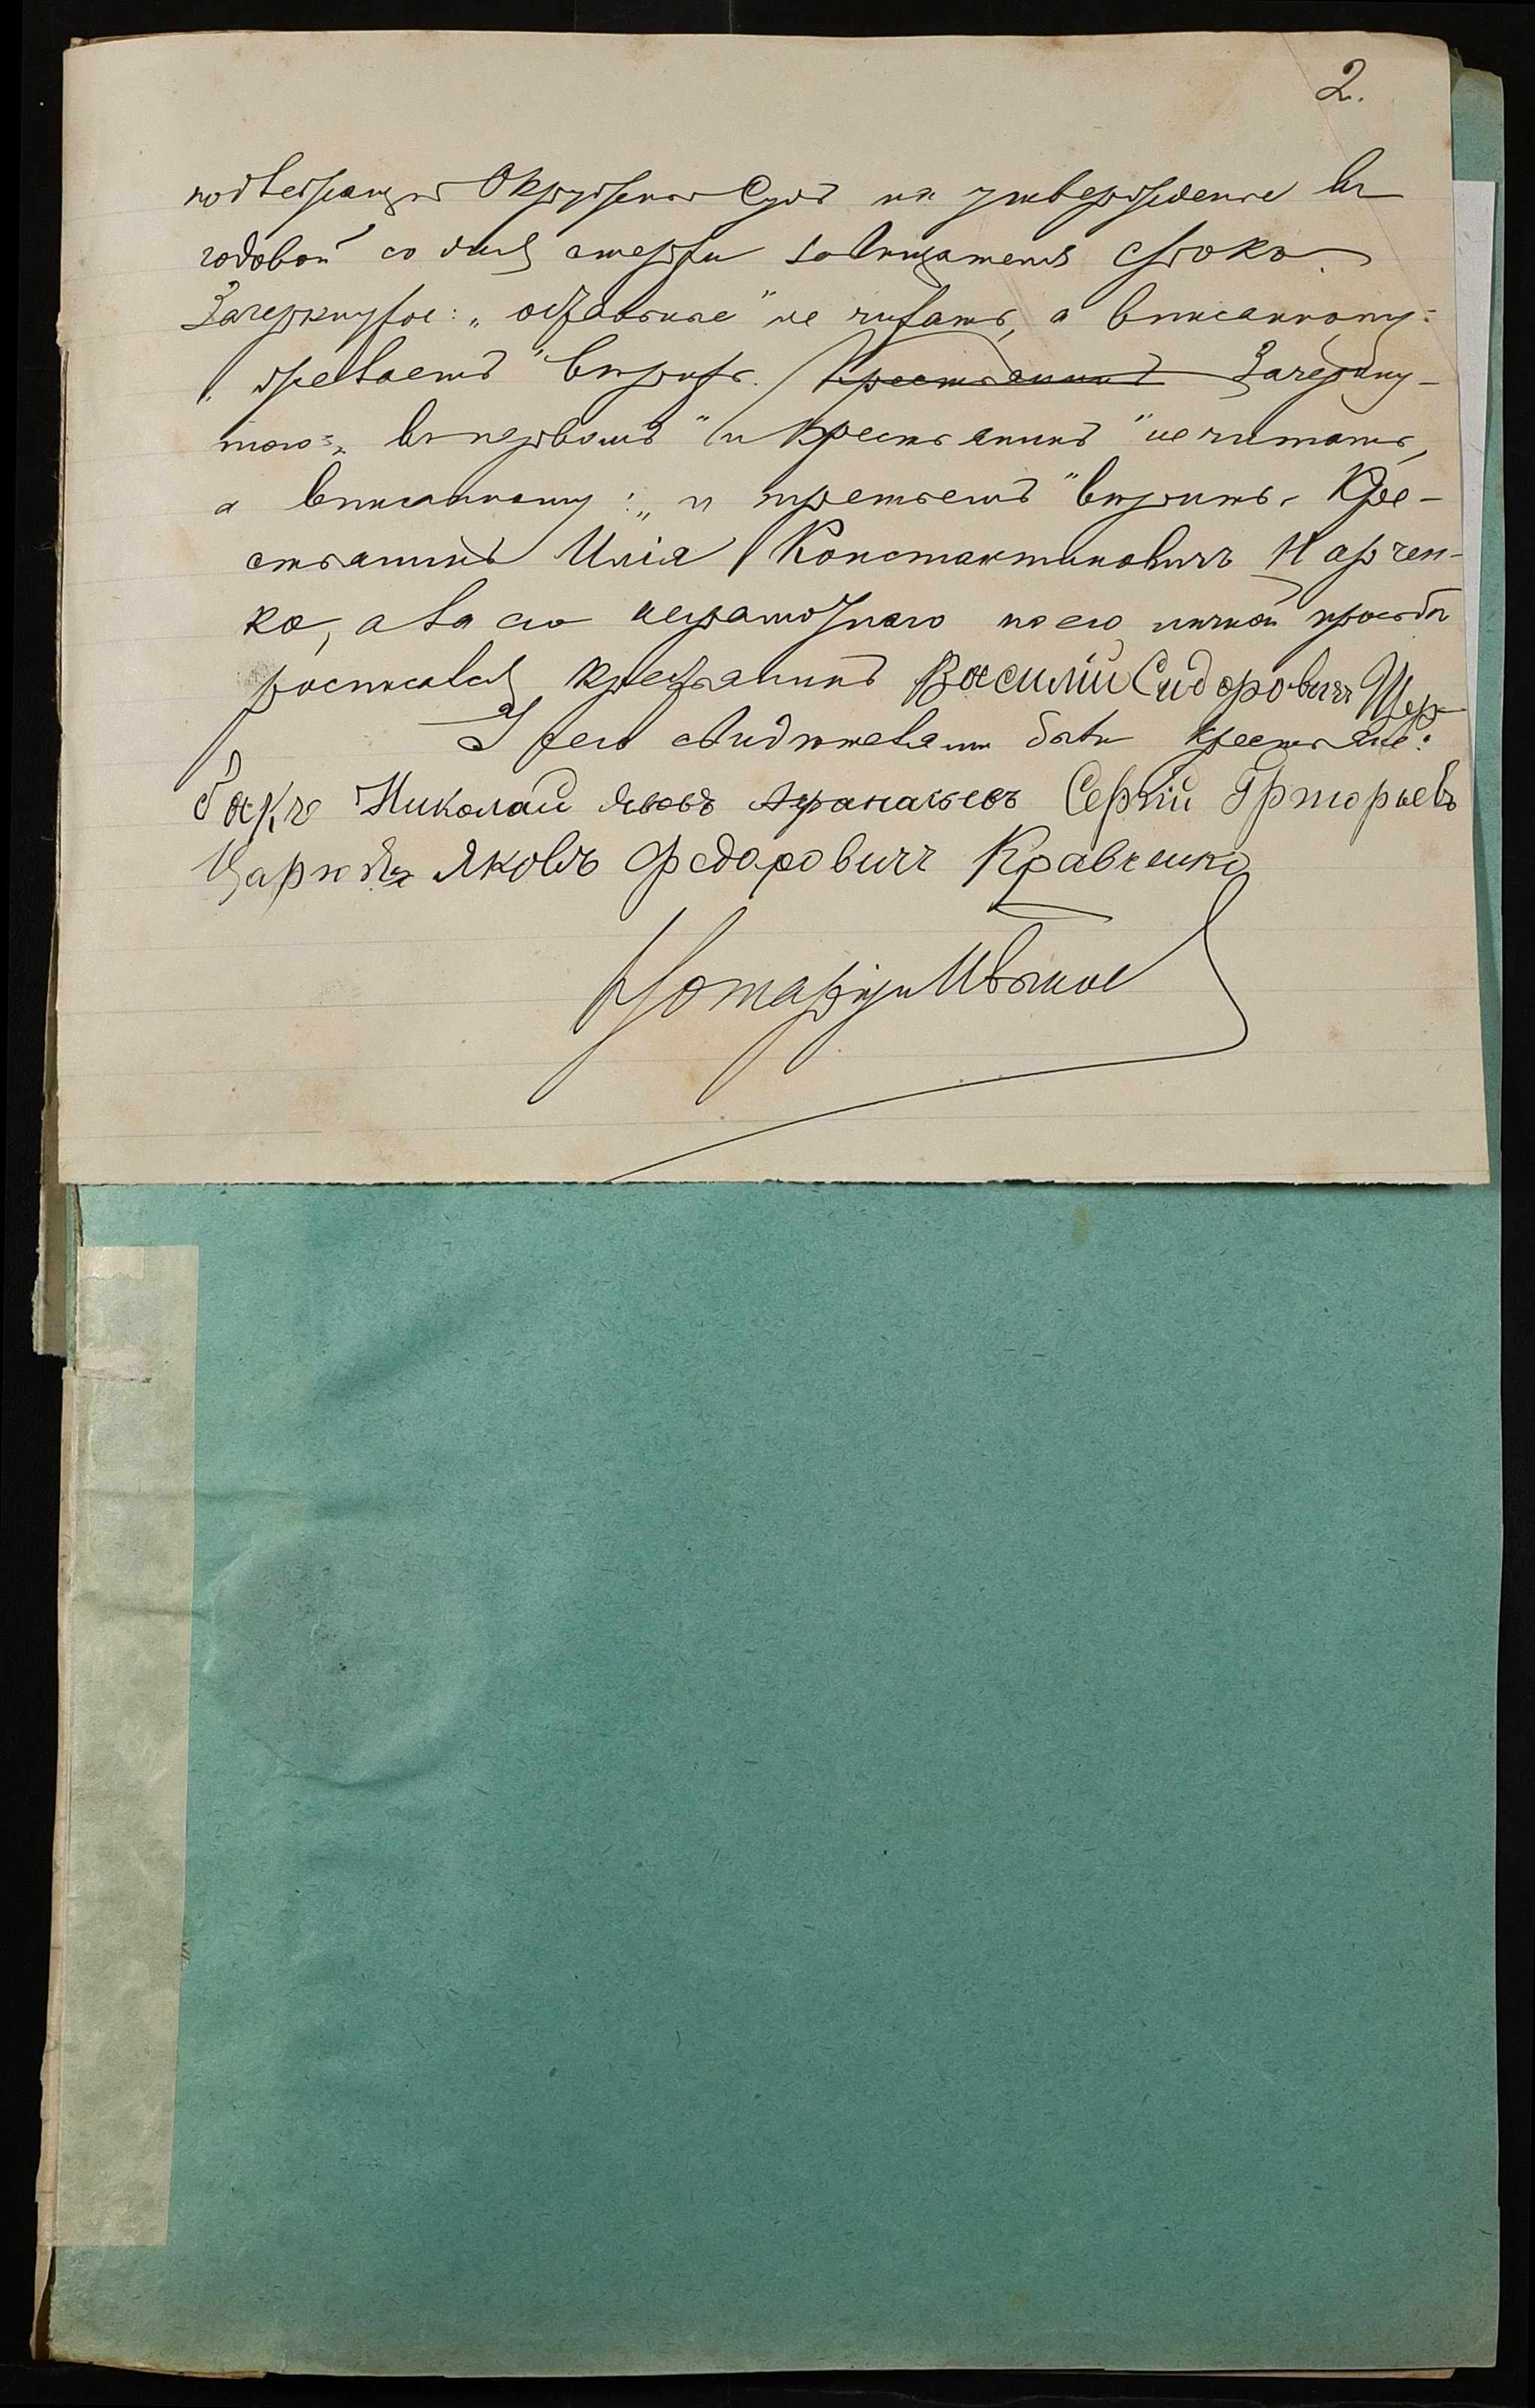 2.
подлежащій Окружный Судъ на утвержденіе въ
годовой со дня смерти завѣщателя срокъ.
Зачеркнутое: „остальные" не читать, а вписанному:
„ желаемъ" вѣрить. Крестьянинъ Зачеркну-
того: „въ первомъ" и Крестьянинъ" не читать,
а вписанному: „и третьемъ" вѣрить. Кре-
стьянинъ Илія Константиновичъ Марчен-
ко, а за его неграмотнаго по его личной просьбѣ
росписался крестьянинъ Василій Сидоровичъ Щер-
У сего свидѣтелями были крестьяне:
Николай Афанасьевъ Сергій Григорьевъ
Яковъ Федоровичъ Кравченко
Нотаріусъ